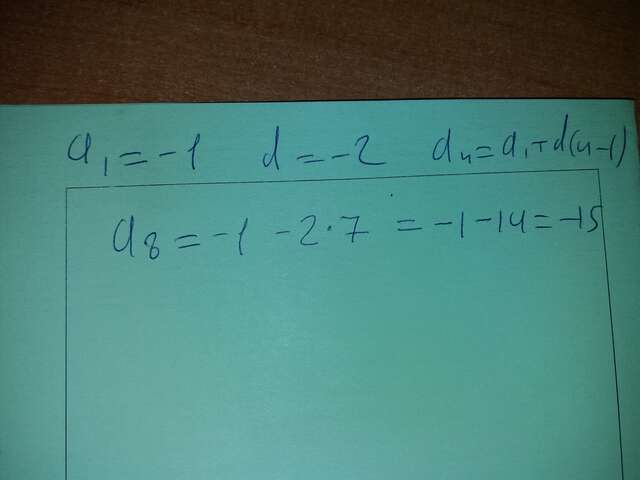 a₁ = -1   d = -2   aₙ = a₁ + d(n-1)
a₈ = -1 - 2·7 = -1 - 14 = -15